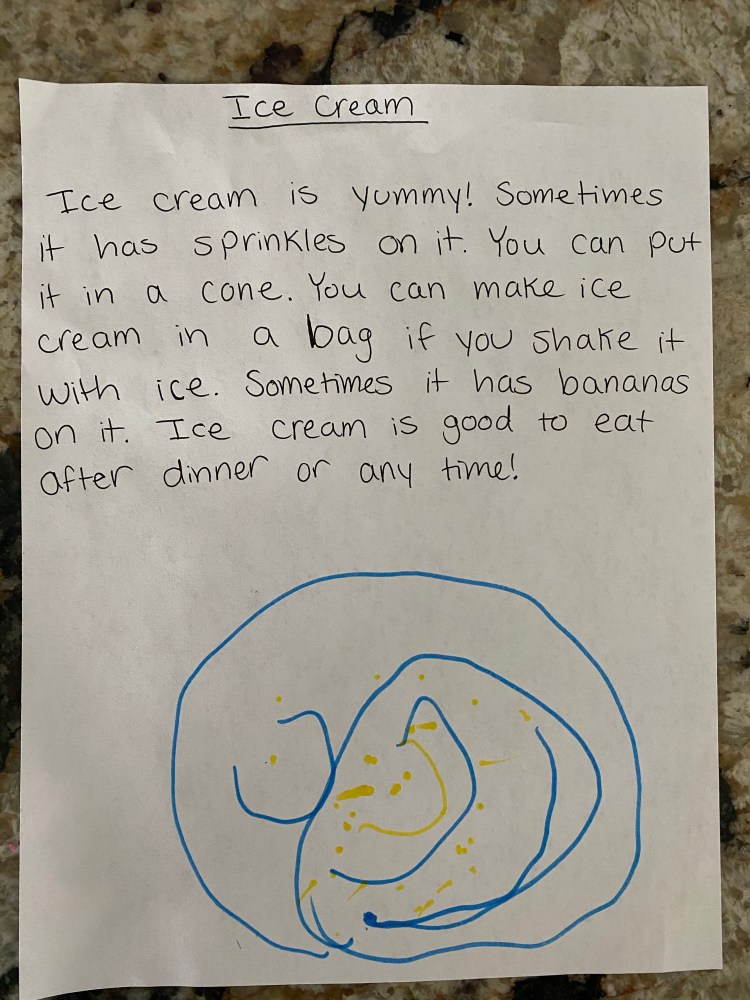 Ice Cream
Ice cream is yummy! Sometimes
it has sprinkles on it. You can put
it in a cone. You can make ice
cream in a bag if you shake it
with ice. Sometimes it has bananas
on it. Ice cream is good to eat
after dinner or any time!